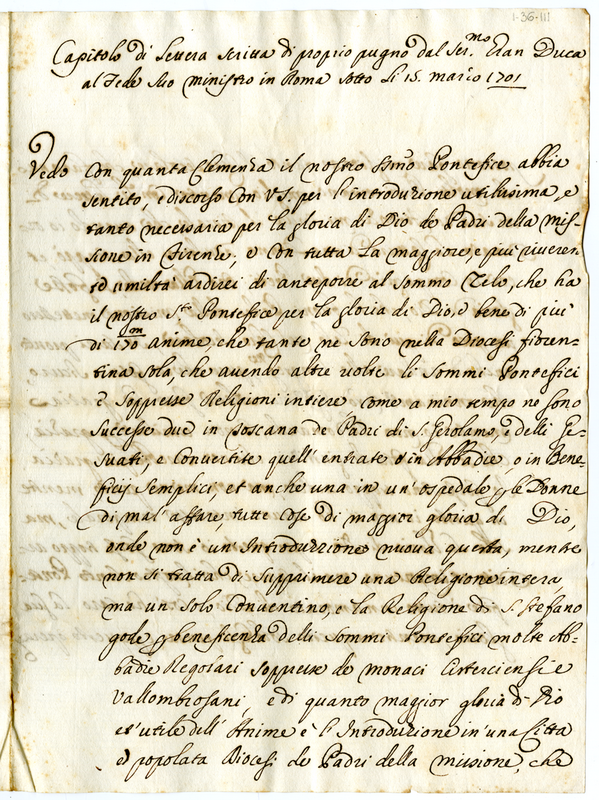 1-36-111
Capitolo di Lettera scritta di proprio pugno dal Ser.mo Gran Duca
al Fede suo ministro in Roma sotto li 15. marzo 1701
Vedo con quanta Clemenza il nostro Ssmo Pontefice abbia
sentito, e discorso con VS. per l'introduzione utilissima, e
tanto necessaria per la gloria di Dio de Padri della Mis-
sione in Firenze; e con tutta la maggiore, e più riveren-
te umiltà ardirei di anteporre al sommo Zelo, che ha
il nostro Sto Pontefice per la gloria di Dio, e bene di più
di 170 m anime, che tante ne sono nella Diocesi fioren-
tina sola, che avendo altre volte li Sommi Pontefici
e soppresse Religioni intiere come a mio tempo ne sono
successe due in Toscana de Padri di S. Gerolamo, e delli Ge-
suati, e convertite quell'entrate o in Abbadie, o in Bene-
ficij semplici, et anche una in un'ospedale p le Donne
di mal'affare, tutte cose di maggior gloria di Dio,
onde non è un'Introduzione nuova questa, mentre
non si tratta di supprimere una Religione intera
ma un solo Conventino, e la Religione di S. Stefano
gode p beneficenza delli Sommi Pontefici molte Ab-
badie Regolari soppresse de monaci Cisterciensi e
Vallombrosani, e di quanto maggior gloria di Dio
et utile dell'Anime è l'Introduzione in una Città
e popolata Diocesi de Padri della missione, che